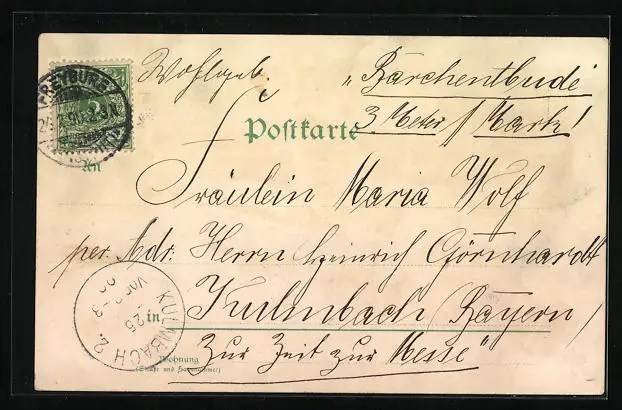 FREYBURG
Wohlgeb. "Bärchentbude
3 Meter 1 Mark!
Postkarte
An
Fräulein Maria Wolf
per. Adr. Herrn Heinrich Görnhardt
in Kulmbach (Bayern)
KULMBACH 2.
Wohnung
(Straße und Hausnummer)
Zur Zeit zur Messe"